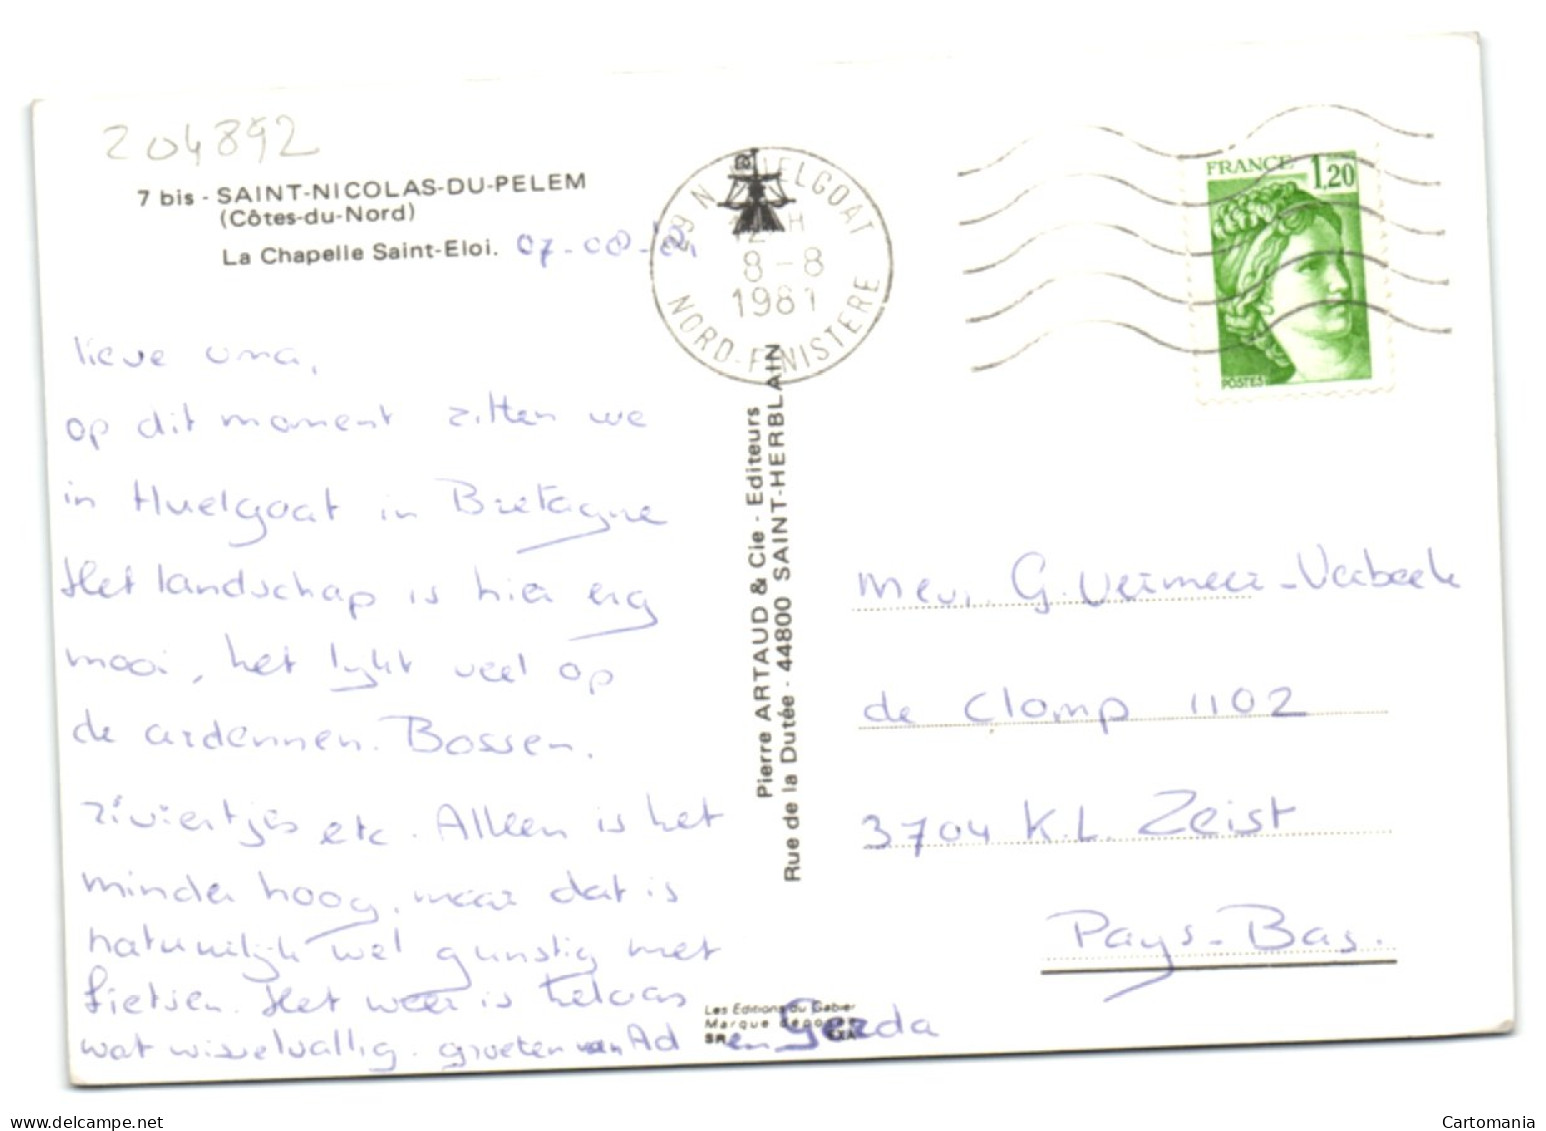 204892
7 bis - SAINT-NICOLAS-DU-PELEM
(Côtes-du-Nord)
La Chapelle Saint-Eloi. 07-08-
lieve oma,
op dit moment zitten we
in Huelgoat in Bretagne
Het landschap is hier erg
mooi, het lijkt veel op
de ardennen. Bossen.
riviertjes etc. Alleen is het
minder hoog, maar dat is
natuurlijk wel gunstig met
fietsen. Het weer is helaas
wat wisselvallig. groeten van Ad
en Gerda
Les Editions du Gabier
Marque déposée
Pierre ARTAUD & Cie - Editeurs
Rue de la Dutée - 44800 SAINT-HERBLAIN
29 N HUELGOAT
12 H
8-8
1981
NORD-FINISTERE
FRANCE 1,20
POSTES
Mevr. G. Vermeer-Verbeek
de Clomp 1102
3704 K.L. Zeist
Pays-Bas.
Cartomania